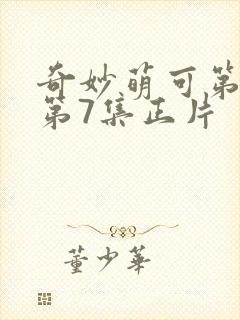 奇妙萌可第
第7集正片
董少華